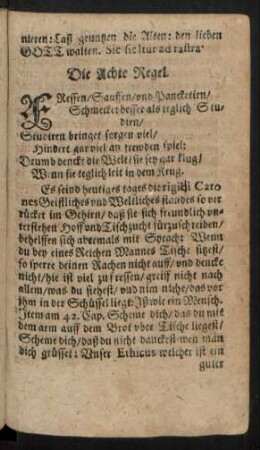 nieren: Laß gruntzen die Alten: den lieben
GOTT walten. Sic sic itur ad rastra.
Die Achte Regel.
FRessen/Sauffen/vnd Panckctirn/
Schmecket besser als teglich Stu-
diren/
Studiren bringet sorgen viel/
Hindert gar viel an frewden spiel:
Drumb denckt die Welt/ sie sey gar klug/
Wenn sie teglich leit in dem Krug.
Es seind heutiges tages die rigidi Cato
nes Geistliches vnd Weltliches standes so ver
rücket im Gehirn/ daß sie sich freundlich vn-
terstehen Hoff vnd Tischzucht fürzuschreiben/
behelffen sich abermals mit Syrach: Wenn
du bey eines Reichen Mannes Tische sitzest/
so sperre deinen Rachen nicht auff/ vnd dencke
nicht/ hie ist viel zu fressen/ greiff nicht nach
allem/ was du siehest/ vnd nim nicht/ das vor
ihm in der Schüssel liegt: Iß wie ein Mensch.
Item am 42. Cap. Scheme dich/ das du mit
dem arm auff dem Brot vber Tische liegest/
Scheme dich/ daß du nicht danckest wen man
dich grüsset: Vnser Ethicus welcher ist ein
guter